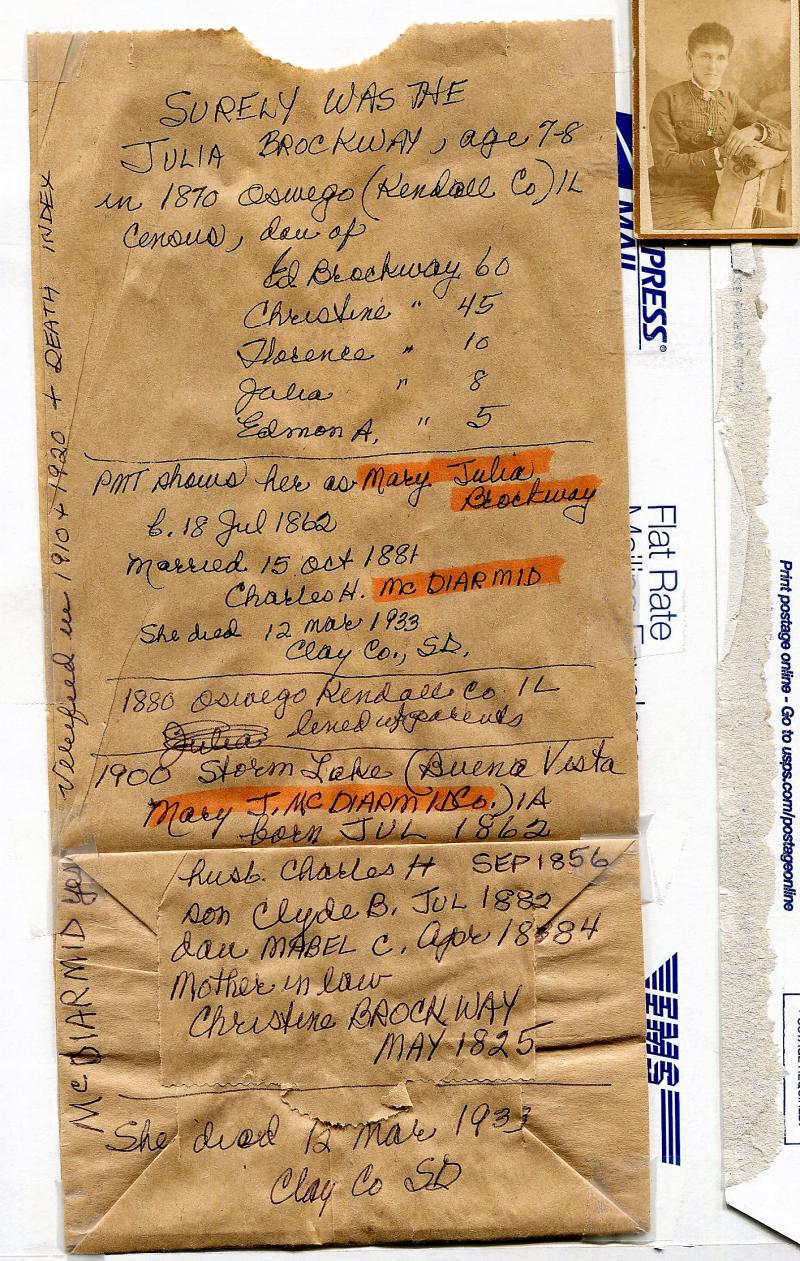 SURELY WAS THE
JULIA BROCKWAY, age 7-8
in 1870 Oswego (Kendall Co) IL
Census, dau of
Ed Brockway 60
Christine " 45
Florence " 10
Julia " 8
Edmon A. " 5
PMT shows her as Mary Julia
Brockway
b. 18 Jul 1862
Married 15 Oct 1881
Charles H. McDIARMID
She died 12 Mar 1933
Clay Co., SD.
1880 Oswego Kendall Co IL
Julia lived w/parents
1900 Storm Lake (Buena Vista
Mary J. McDIARMID Co.) IA
born JUL 1862
husb. Charles H SEP 1856
son Clyde B. JUL 1882
dau MABEL C. Apr 1884
Mother in law
Christine BROCKWAY
MAY 1825
She died 12 Mar 1933
Clay Co SD
McDIARMID yes Verified in 1910 + 1920 + DEATH INDEX
PRESS®
MAIL
Flat Rate
EMS
Print postage online - Go to usps.com/postageonline